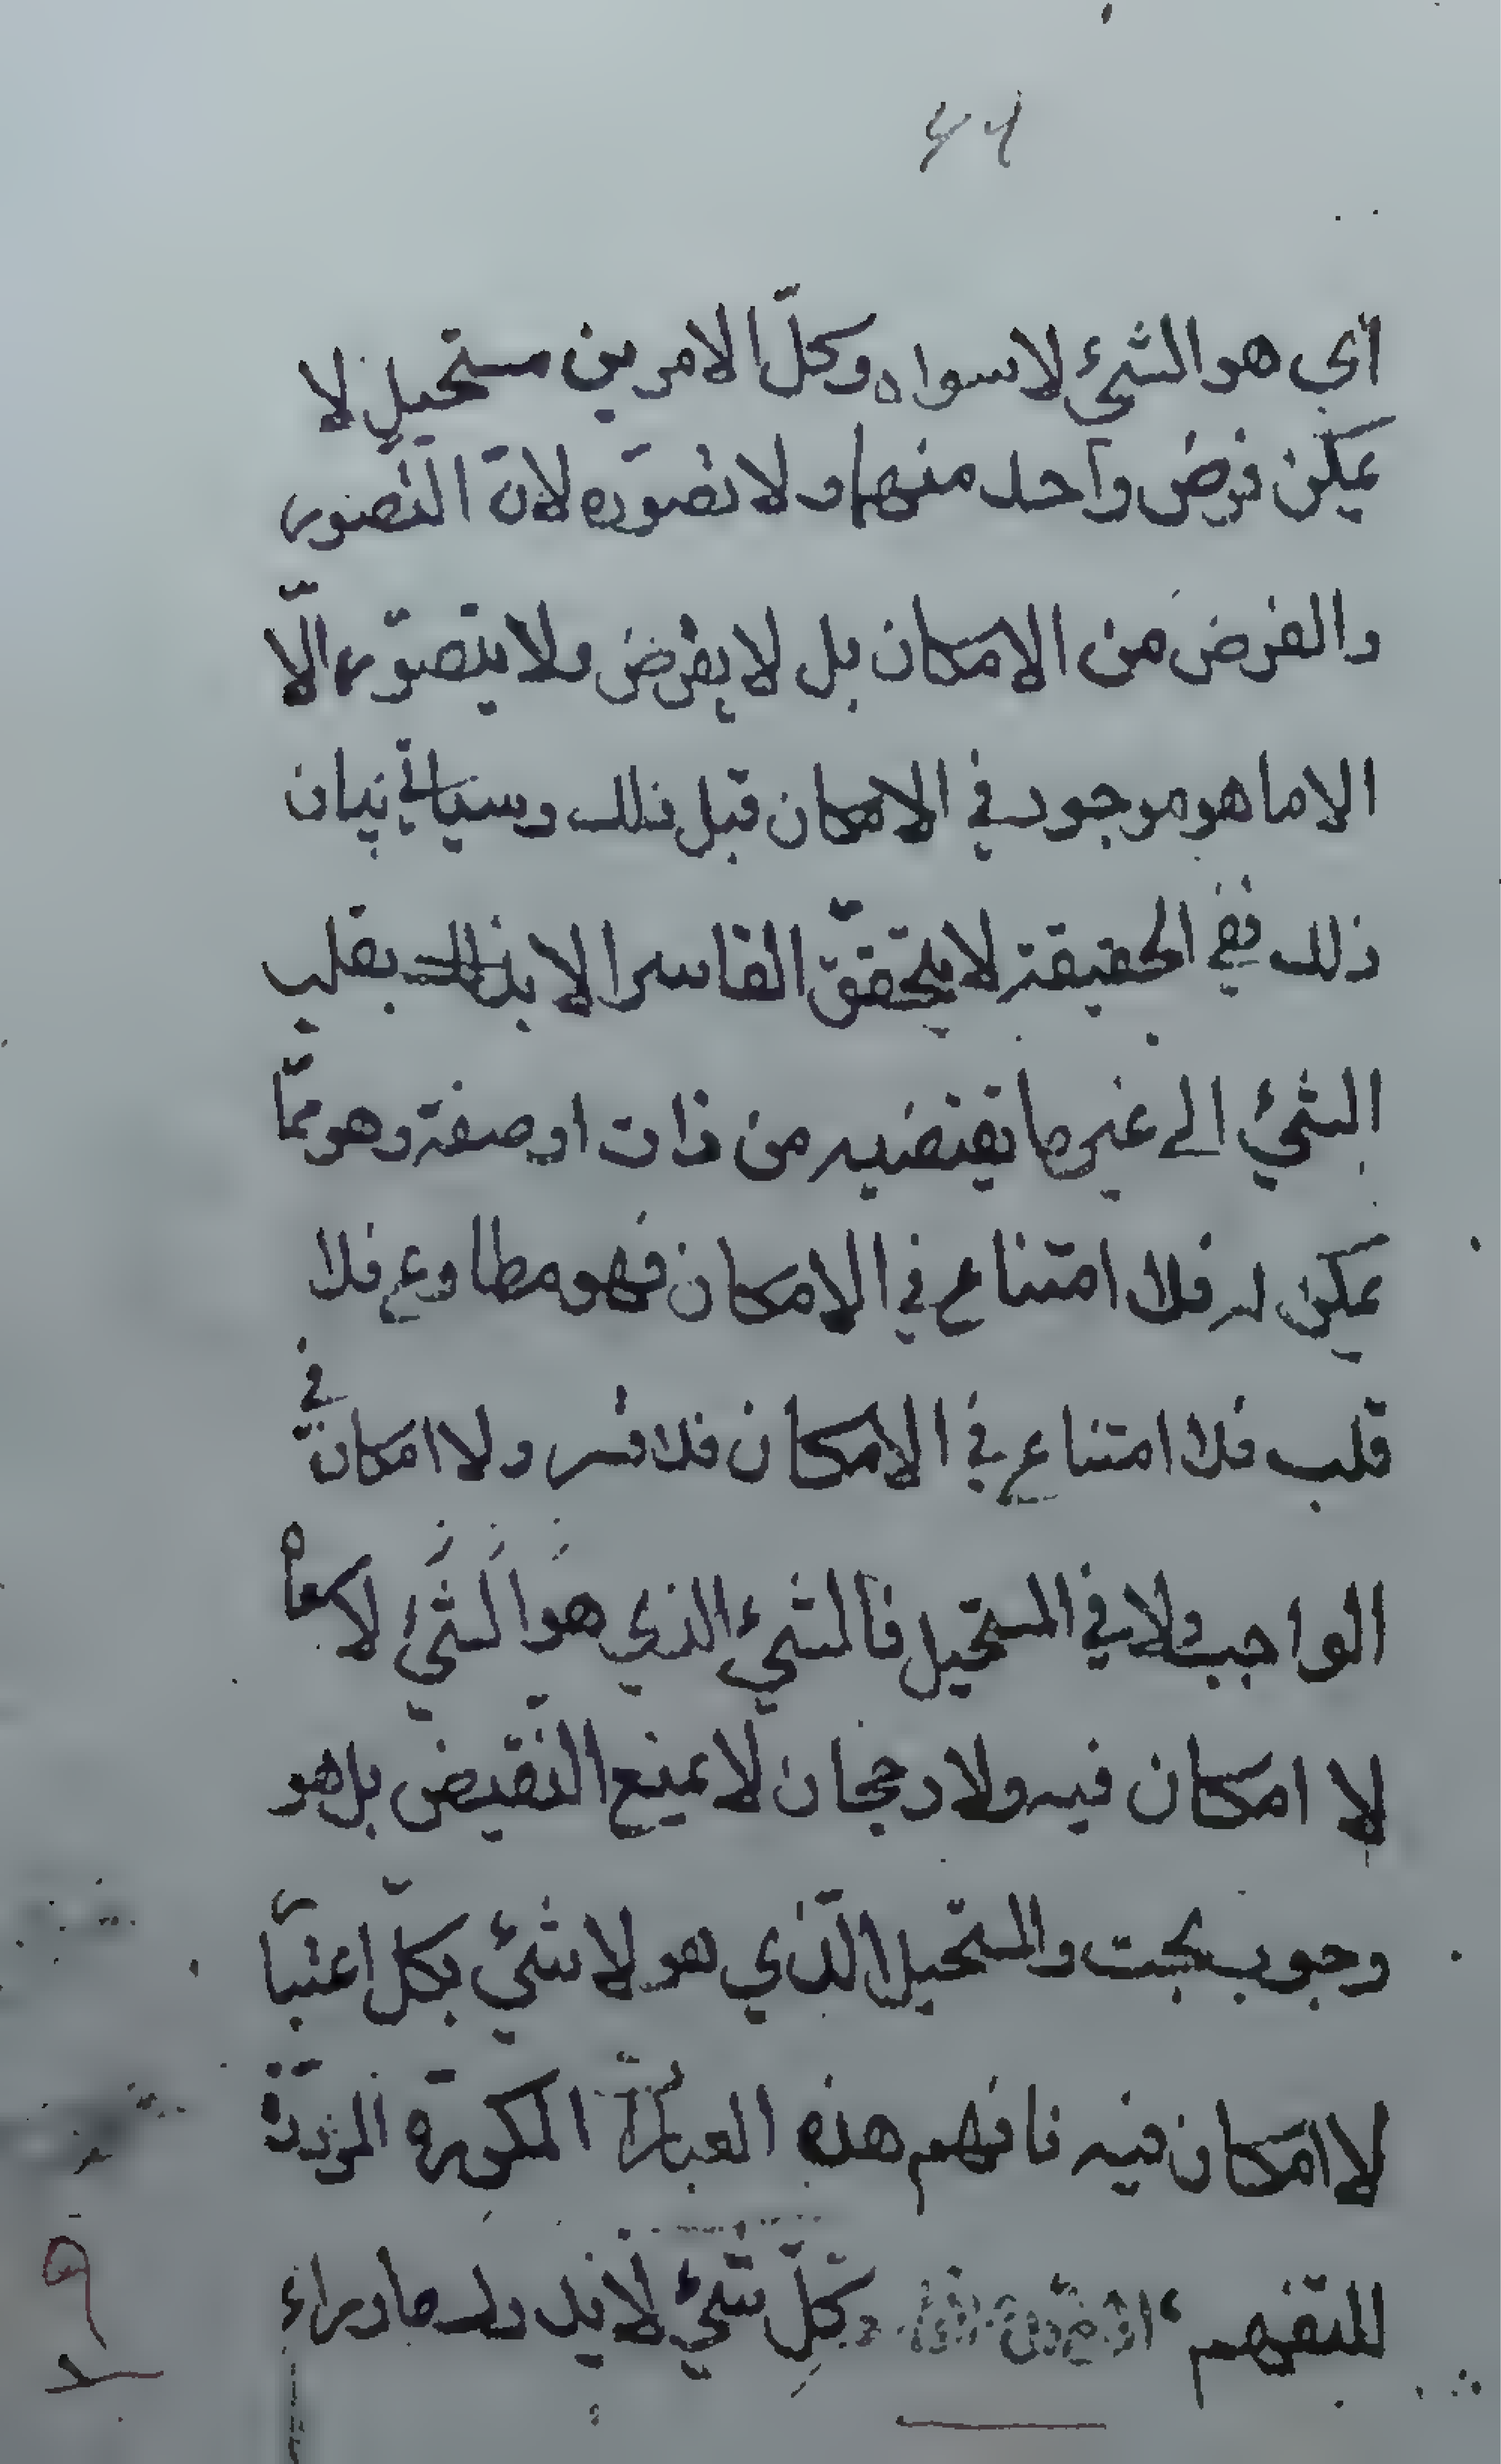 ۴۴
أي هو الشيء لا سواه وكلّ الامرين مستحيل لا
يمكن فرض واحد منهما ولا تصوّره لانّ التصور
والفرض من الامكان بل لا يفرض ولا يتصوّر الّا
الا ما هو موجود في الامكان قبل ذلك وسياتي بيان
ذلك ففي الحقيقة لا يتحقّق القاسر الا بذلك بقلب
الشيء الى غير ما تقتضيه من ذات او صفة وهو ممّا
يمكن له فلا امتناع في الامكان فهو مطاوع فلا
قلب فلا امتناع في الامكان فلا قسر ولا امكان في
الواجب ولا في المستحيل فالشيء الذي هو الشيء لا سواه
لا امكان فيه ولا رجحان لا يمنع النّقيض بل هو
وجوب بحت والمستحيل الّذي هو لا شيء بكلّ اعتبار
لا امكان فيه فافهم هذه العبارات المكررة المرددة
للتفهيم كلّ شيء لا يدرك ما وراء